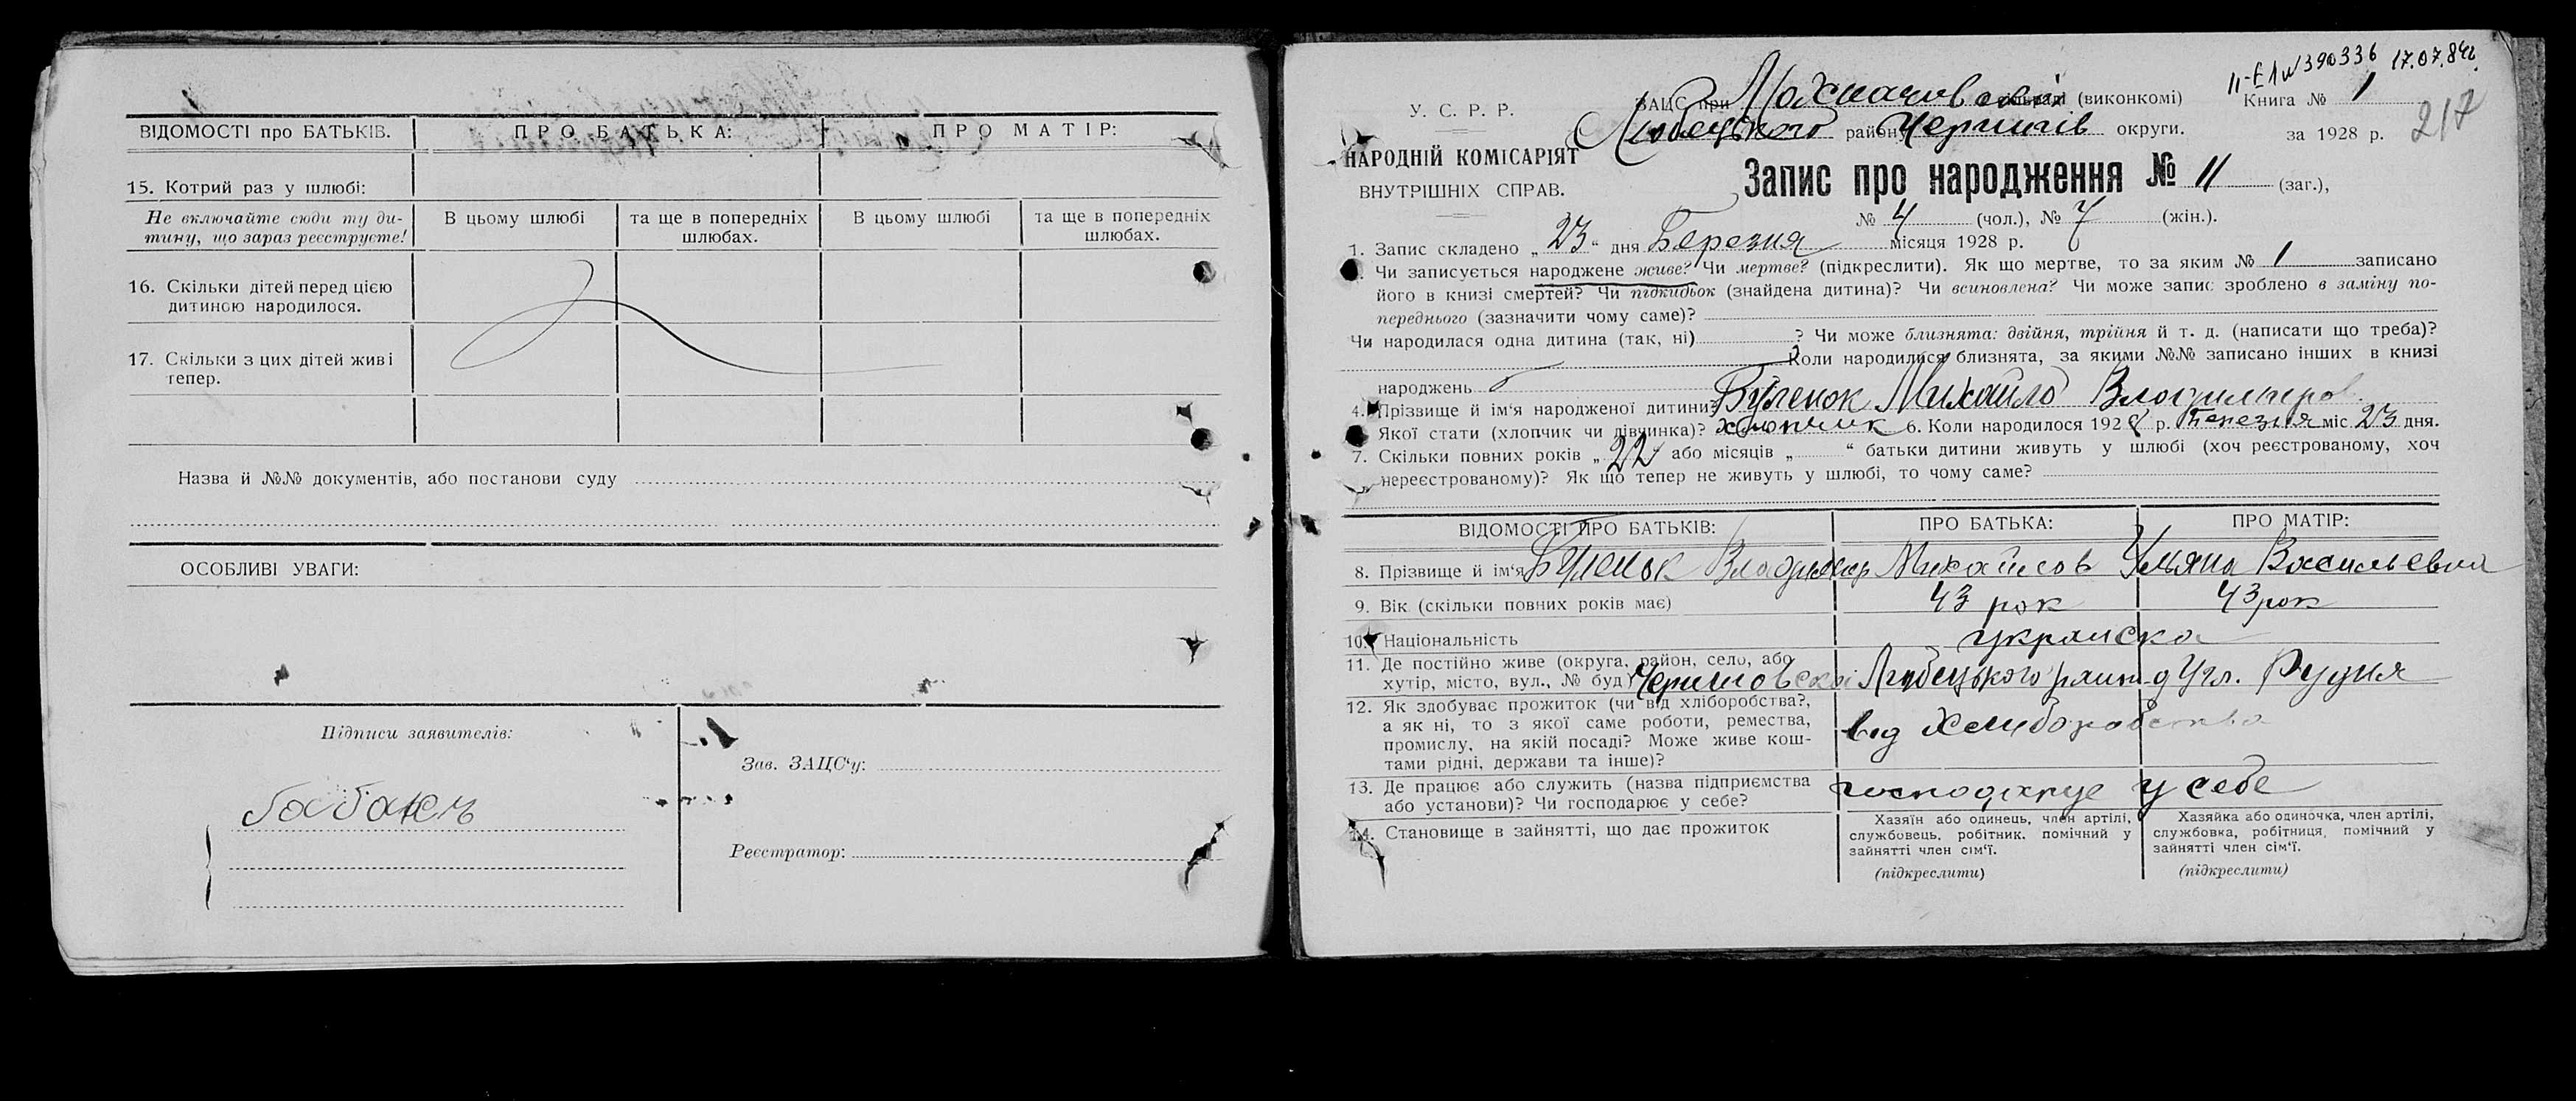 ВІДОМОСТІ про БАТЬКІВ.
ПРО БАТЬКА:
ПРО МАТІР:
15. Котрий раз у шлюбі:
Не включайте сюди ту ди-
тину, що зараз реєструєте!
В цьому шлюбі
та ще в попередніх
шлюбах.
В цьому шлюбі
та ще в попередніх
шлюбах.
16. Скільки дітей перед цією
дитиною народилося.
17. Скільки з цих дітей живі
тепер.
Назва й №№ документів, або постанови суду
ОСОБЛИВІ УВАГИ:
Підписи заявителів:
Зав. ЗАЦС'у:
Реєстратор:
11-ЕЛ № 390336 17.07.84
У. С. Р. Р.
НАРОДНІЙ КОМІСАРІЯТ
ВНУТРІШНІХ СПРАВ.
ЗАЦС при сільраді (виконкомі)
Любецького району Чернигів округи.
Книга № 1
за 1928 р.
217
Запис про народження № 11 (заг.),
№ 4 (чол.), № 7 (жін.).
1. Запис складено „23“ дня Березня місяця 1928 р.
Чи записується народжене живе? Чи мертве? (підкреслити). Як що мертве, то за яким № 1 записано
його в книзі смертей? Чи підкидьок (знайдена дитина)? Чи всиновлена? Чи може запис зроблено в заміну по-
переднього (зазначити чому саме)?
Чи народилася одна дитина (так, ні) ? Чи може близнята: двійня, трійня й т. д. (написати що треба)?
Коли народилися близнята, за якими №№ записано інших в книзі
народжень
4. Прізвище й ім'я народженої дитини? Буленок Михайло Владимиров
Якої стати (хлопчик чи дівчинка)? хлопчик 6. Коли народилося 1928 р. Березня міс 23 дня.
7. Скільки повних років „22“ або місяців „ “ батьки дитини живуть у шлюбі (хоч реєстрованому, хоч
нереєстрованому)? Як що тепер не живуть у шлюбі, то чому саме?
ВІДОМОСТІ ПРО БАТЬКІВ:
ПРО БАТЬКА:
ПРО МАТІР:
8. Прізвище й ім'я Буленок Владимир Михайлов Ульяна Васильевна
9. Вік (скільки повних років має) 43 рок 43 рок
10. Національність украиска
11. Де постійно живе (округа, район, село, або
хутір, місто, вул., № буд) Любецького Рудня
12. Як здобуває прожиток (чи від хліборобства?,
а як ні, то з якої саме роботи, ремества,
промислу, на якій посаді? Може живе кош-
тами рідні, держави та інше)?
від
13. Де працює або служить (назва підприємства
або установи)? Чи господарює у себе?
господарує у себе
14. Становище в зайнятті, що дає прожиток
Хазяїн або одинець, член артілі,
службовець, робітник, помічний у
зайнятті член сім'ї.
(підкреслити)
Хазяйка або одиночка, член артілі,
службовка, робітниця, помічний у
зайнятті член сім'ї.
(підкреслити)